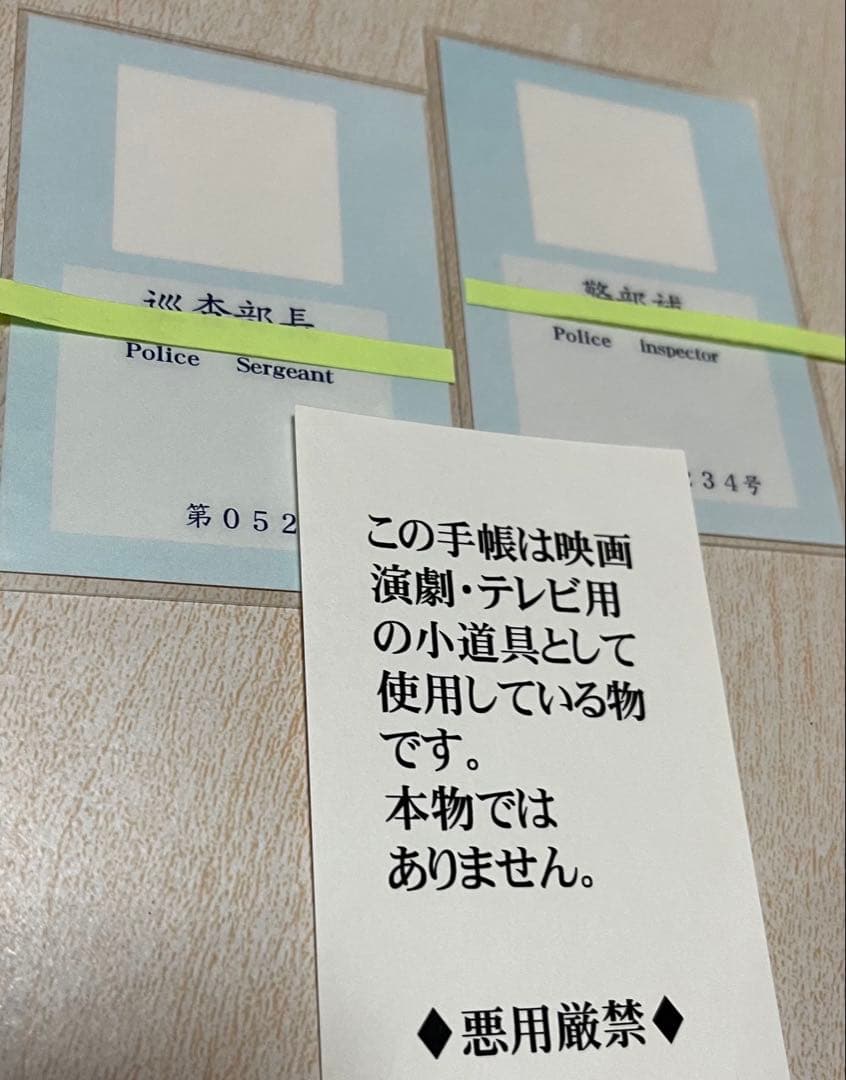 巡査部長
Police Sergeant
第052
警部補
Police Inspector
234号
この手帳は映画
演劇・テレビ用
の小道具として
使用している物
です。
本物では
ありません。
◆悪用厳禁◆